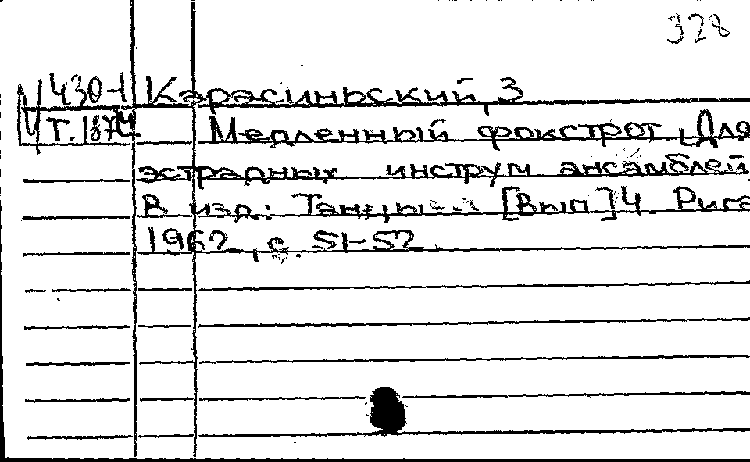 328
430-1 Карасиньский, З
Т.1874 Медленный фокстрот. [Для
эстрадных инструм ансамблей
В изд.: Танцы [Вып]4. Рига
1962, с. 51-52.